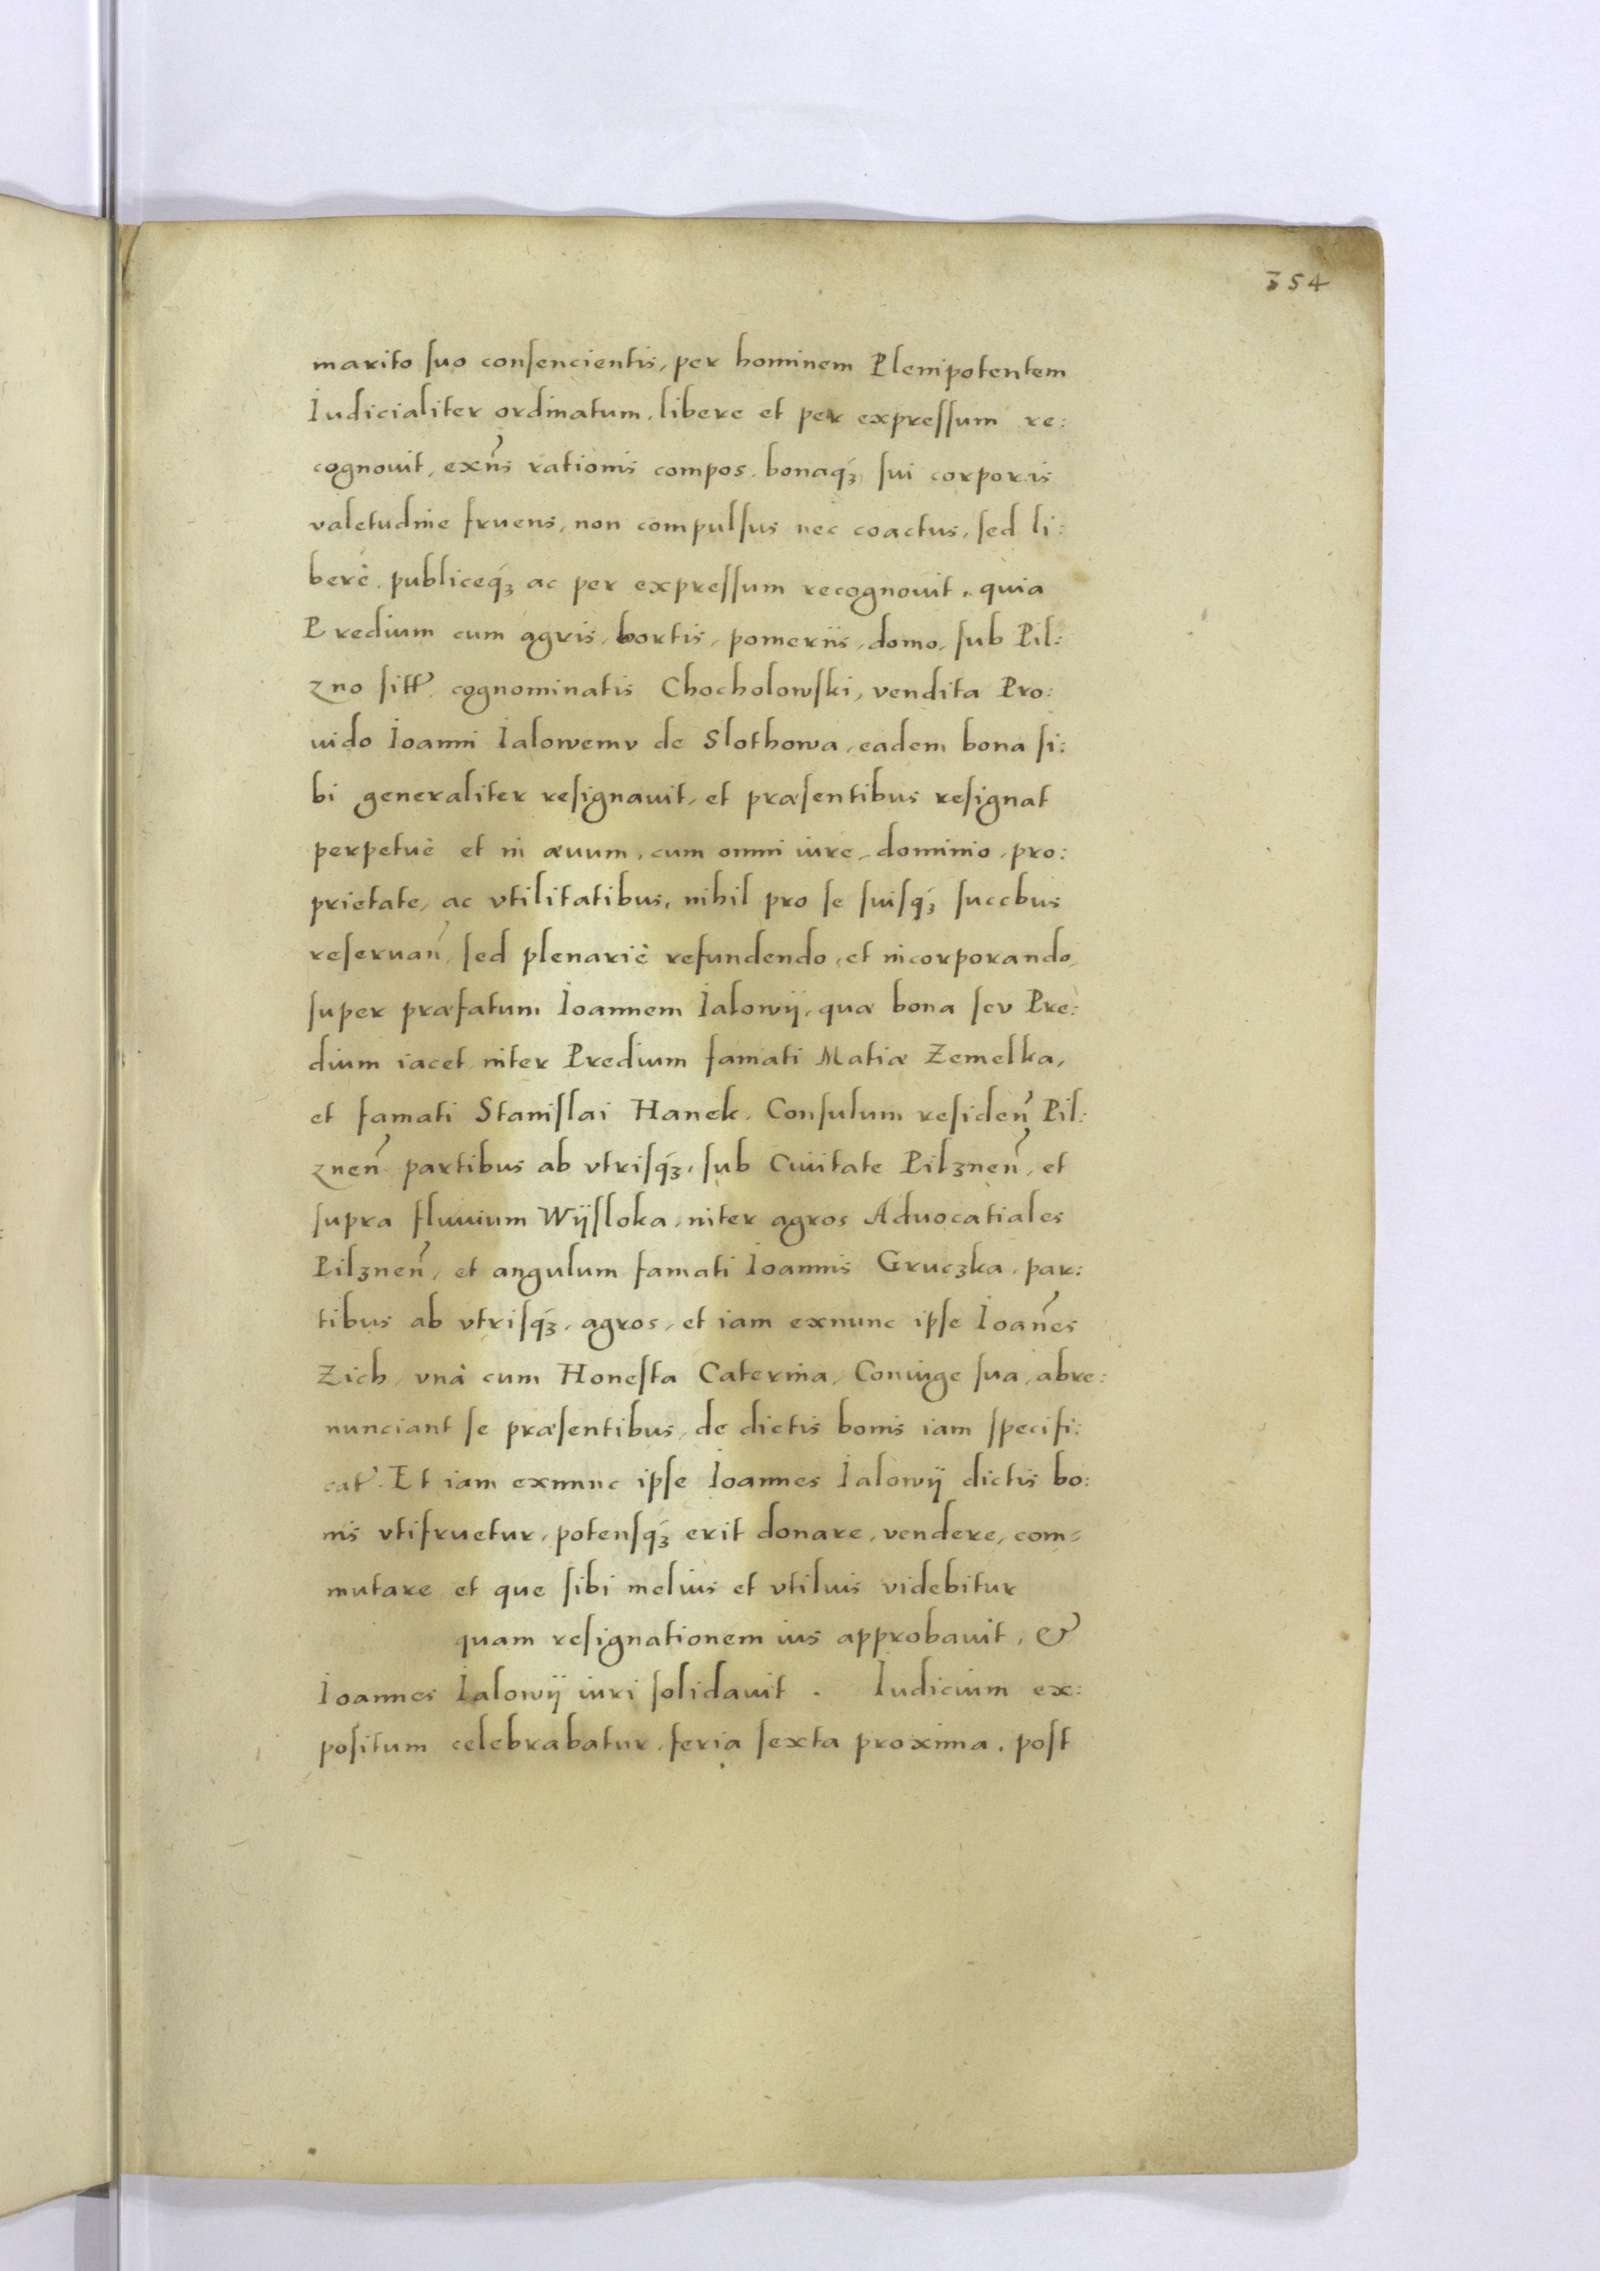 354
marito suo consencientis, per hominem Plenipotentem
Iudicialiter ordinatum, libere et per expressum re:
cognouit, exñs rationis compos, bonaq́ꝫ sui corporis
valetudine fruens, non compulsus nec coactus, sed li:
berè, publiceq́ꝫ ac per expressum recognouit, quia
Predium cum agris, hortis, pomeriis, domo, sub Pil:
zno sitt̃ cognominatis Chocholowski, vendita Pro:
uido Ioanni Ialowemv de Slothowa, eadem bona si:
bi generaliter resignauit, et præsentibus resignat
perpetuè et in æuum, cum omni iure, dominio, pro:
prietate, ac vtilitatibus, nihil pro se suisq́ꝫ succbus
reseruañ, sed plenariè refundendo, et incorporando,
super præfatum Ioannem Ialowÿ, quæ bona sev Pre:
dium iacet inter Predium famati Matiæ Zemelka,
et famati Stanislai Hanek, Consulum residen̄ Pil:
znen̄ partibus ab vtrisq́ꝫ, sub Ciuitate Pilznen̄, et
supra fluuium Wÿsloka, inter agros Aduocatiales
Pilznen̄, et angulum famati Ioannis Gruczka, par:
tibus ab vtrisq́ꝫ, agros, et iam exnunc ipse Ioañes
Zich, vnà cum Honesta Caterina, Coniuge sua, abre:
nunciant se præsentibus, de dictis bonis iam specifi:
cat̃. Et iam exnunc ipse Ioannes Ialowÿ dictis bo:
nis vtifruetur, potensq́ꝫ erit donare, vendere, com=
mutare et que sibi melius et vtilius videbitur
quam resignationem ius approbauit, &
Ioannes Ialowÿ iuri solidauit. Iudicium ex:
positum celebrabatur, feria sexta proxima, post